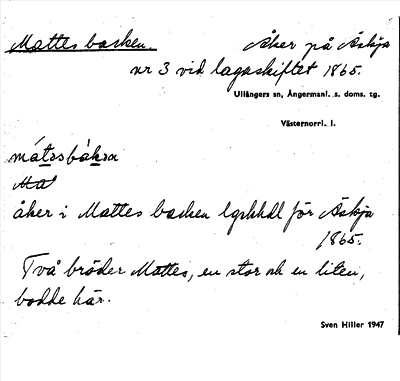 Mattes backen. Åker på Äskja
nr 3 vid lagaskiftet 1865.
Ullångers sn, Ångermanl. s. doms. tg.
Västernorrl. l.
åker i Mattes backen lgskhdl för Äskja
1865.
Två bröder Mattes, en stor och en liten,
bodde här.
Sven Hiller 1947